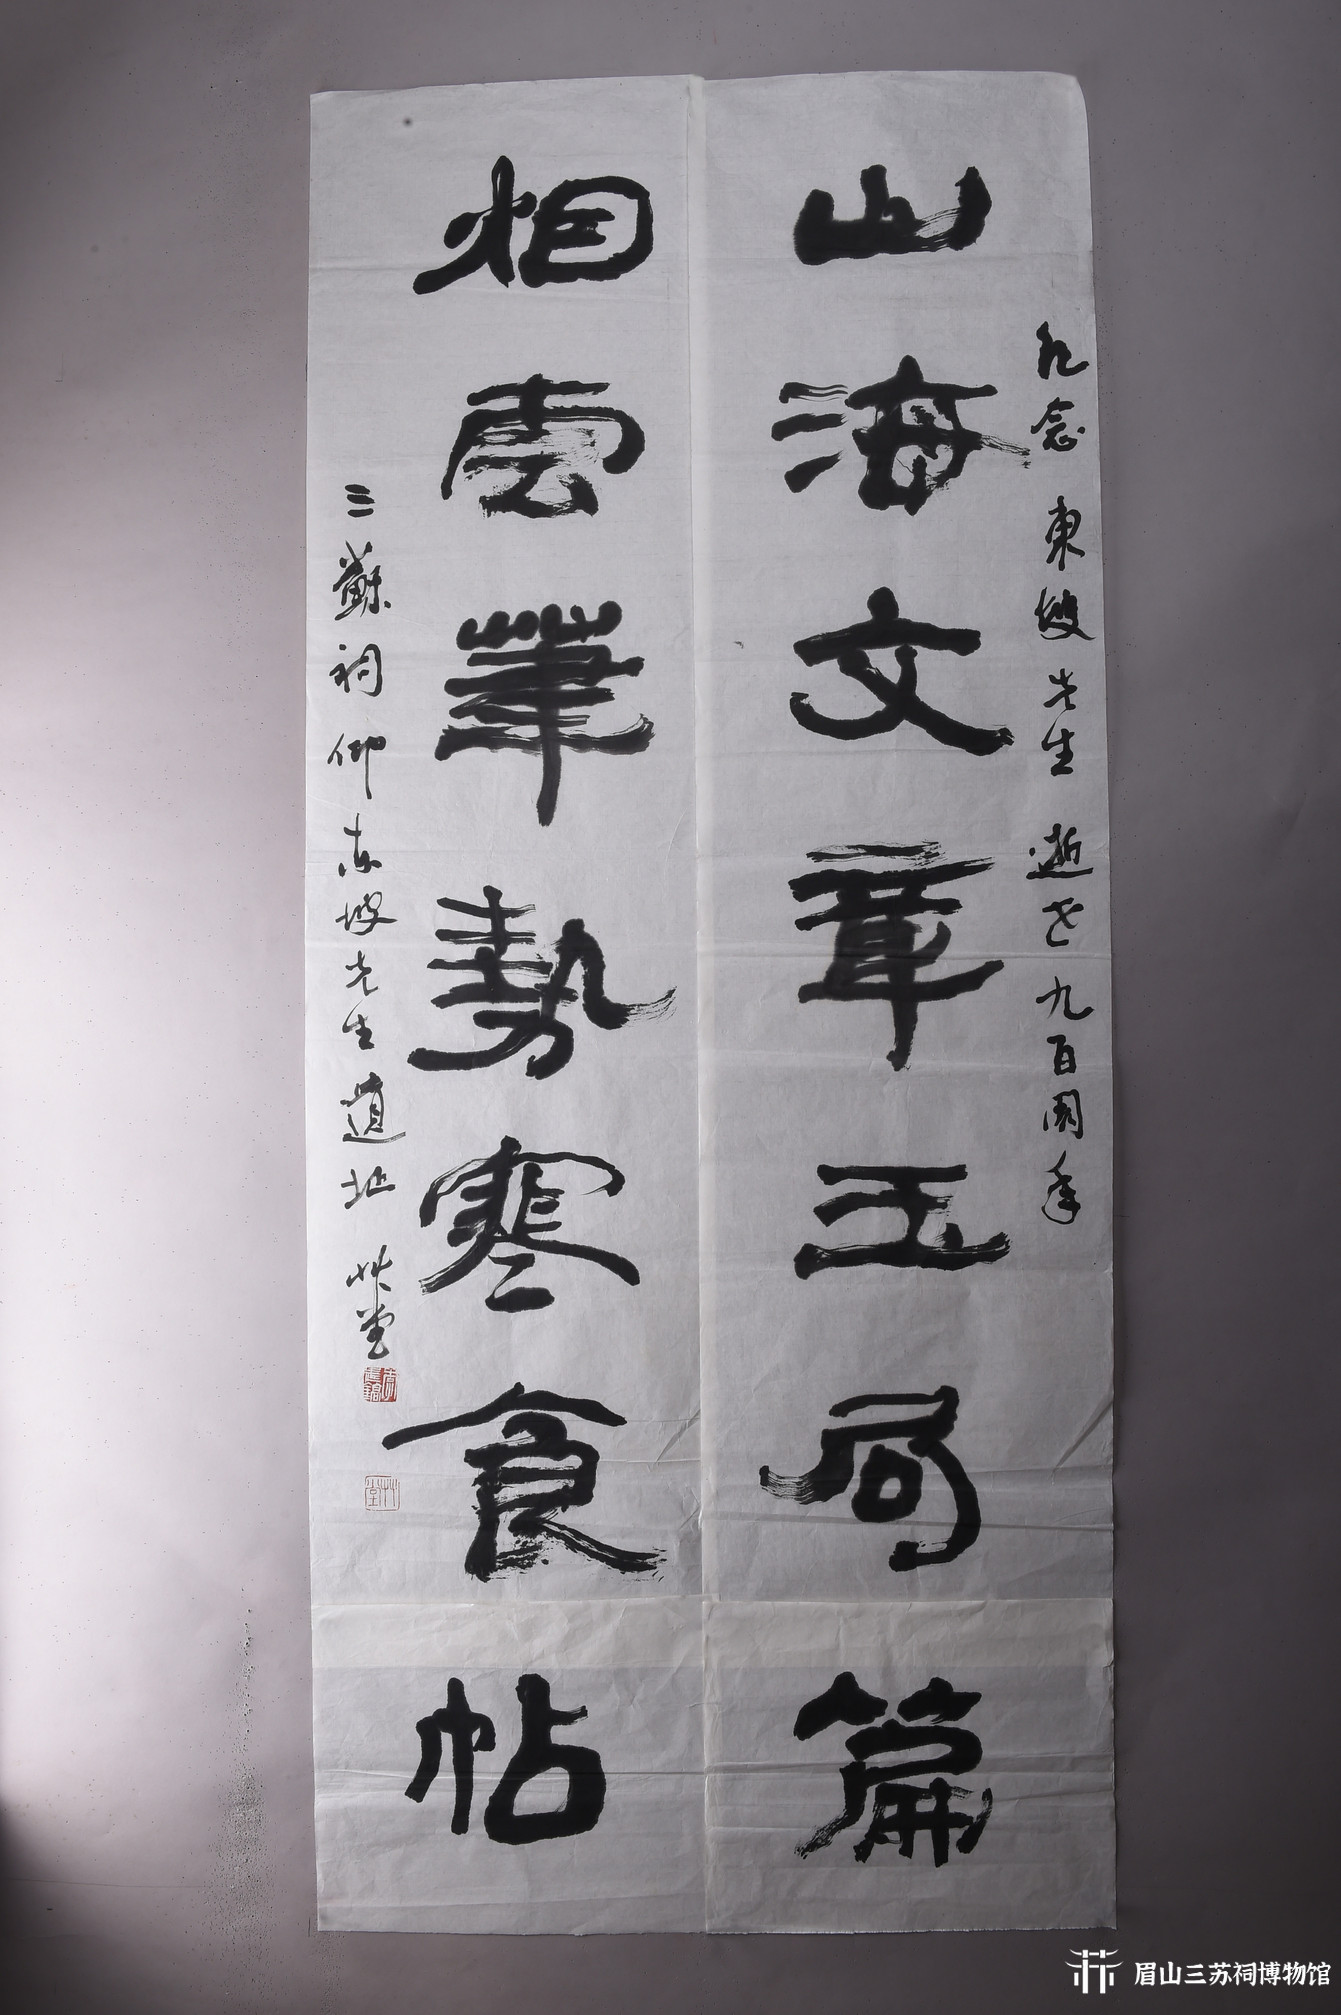 纪念东坡先生逝世九百周年
山海文章玉局篇
烟云笔势寒食帖
三苏祠仰东坡先生遗址
眉山三苏祠博物馆